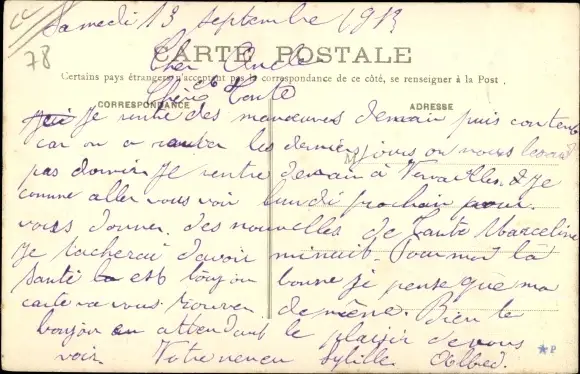 Samedi 13 septembre 1913
78
CARTE POSTALE
Cher Oncle
Certains pays étrangers n'acceptant pas la correspondance de ce côté, se renseigner à la Poste.
et
Chère Tante
CORRESPONDANCE
ADRESSE
Je rentre des manœuvres demain puis content
car on a les derniers jours on nous
M
pas dormir Je rentre demain à Versailles & Je
comme aller vous voir lundi prochain pour
vous donner des nouvelles de Tante Marceline
Je tacherai d'avoir minuit. Pour moi la
santé est toujour bonne je pense que ma
carte va vous trouver de même. Bien le
bonjour en attendant le plaisir de vous
voir Votre neveu Alfred
P